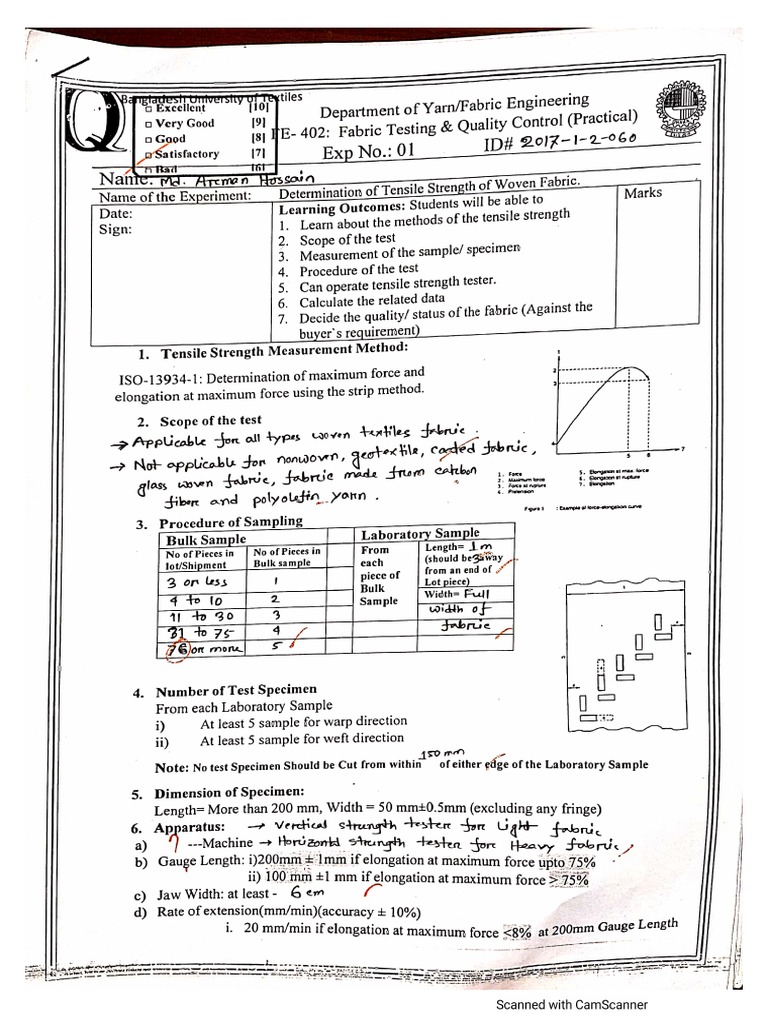 Bangladesh University of Textiles
Q
□ Excellent [10]
□ Very Good [9]
□ Good [8]
□ Satisfactory [7]
□ Bad [6]
Department of Yarn/Fabric Engineering
FE- 402: Fabric Testing & Quality Control (Practical)
Exp No.: 01 ID# 2017-1-2-060
Name: Md. Arman Hossain
Name of the Experiment: Determination of Tensile Strength of Woven Fabric. Marks
Date:
Sign:
Learning Outcomes: Students will be able to
1. Learn about the methods of the tensile strength
2. Scope of the test
3. Measurement of the sample/ specimen
4. Procedure of the test
5. Can operate tensile strength tester.
6. Calculate the related data
7. Decide the quality/ status of the fabric (Against the
buyer`s requirement)
1. Tensile Strength Measurement Method:
ISO-13934-1: Determination of maximum force and
elongation at maximum force using the strip method.
1
2
3
4
5 6 7
1. Force
2. Maximum force
3. Force at rupture
4. Pretension
5. Elongation at max. force
6. Elongation at rupture
7. Elongation
Figure 1 : Example of force-elongation curve
2. Scope of the test
→ Applicable for all types woven textiles fabric.
→ Not applicable for nonwoven, geotextile, coated fabric,
glass woven fabric, fabric made from carbon
fiber and polyolefin yarn.
3. Procedure of Sampling
Bulk Sample Laboratory Sample
No of Pieces in lot/Shipment
No of Pieces in Bulk sample
From each piece of Bulk Sample
Length= 1m
(should be 3 away
from an end of
Lot piece)
Width= Full
width of
fabric
3 or less 1
4 to 10 2
11 to 30 3
31 to 75 4
76 or more 5
4. Number of Test Specimen
From each Laboratory Sample
i) At least 5 sample for warp direction
ii) At least 5 sample for weft direction
Note: No test Specimen Should be Cut from within 150 mm of either edge of the Laboratory Sample
5. Dimension of Specimen:
Length= More than 200 mm, Width = 50 mm±0.5mm (excluding any fringe)
6. Apparatus: → Vertical strength tester for Light fabric
a) ? ---Machine → Horizontal strength tester for Heavy fabric
b) Gauge Length: i)200mm ± 1mm if elongation at maximum force upto 75%
ii) 100 mm ±1 mm if elongation at maximum force > 75%
c) Jaw Width: at least - 6 cm
d) Rate of extension(mm/min)(accuracy ± 10%)
i. 20 mm/min if elongation at maximum force <8% at 200mm Gauge Length
Scanned with CamScanner